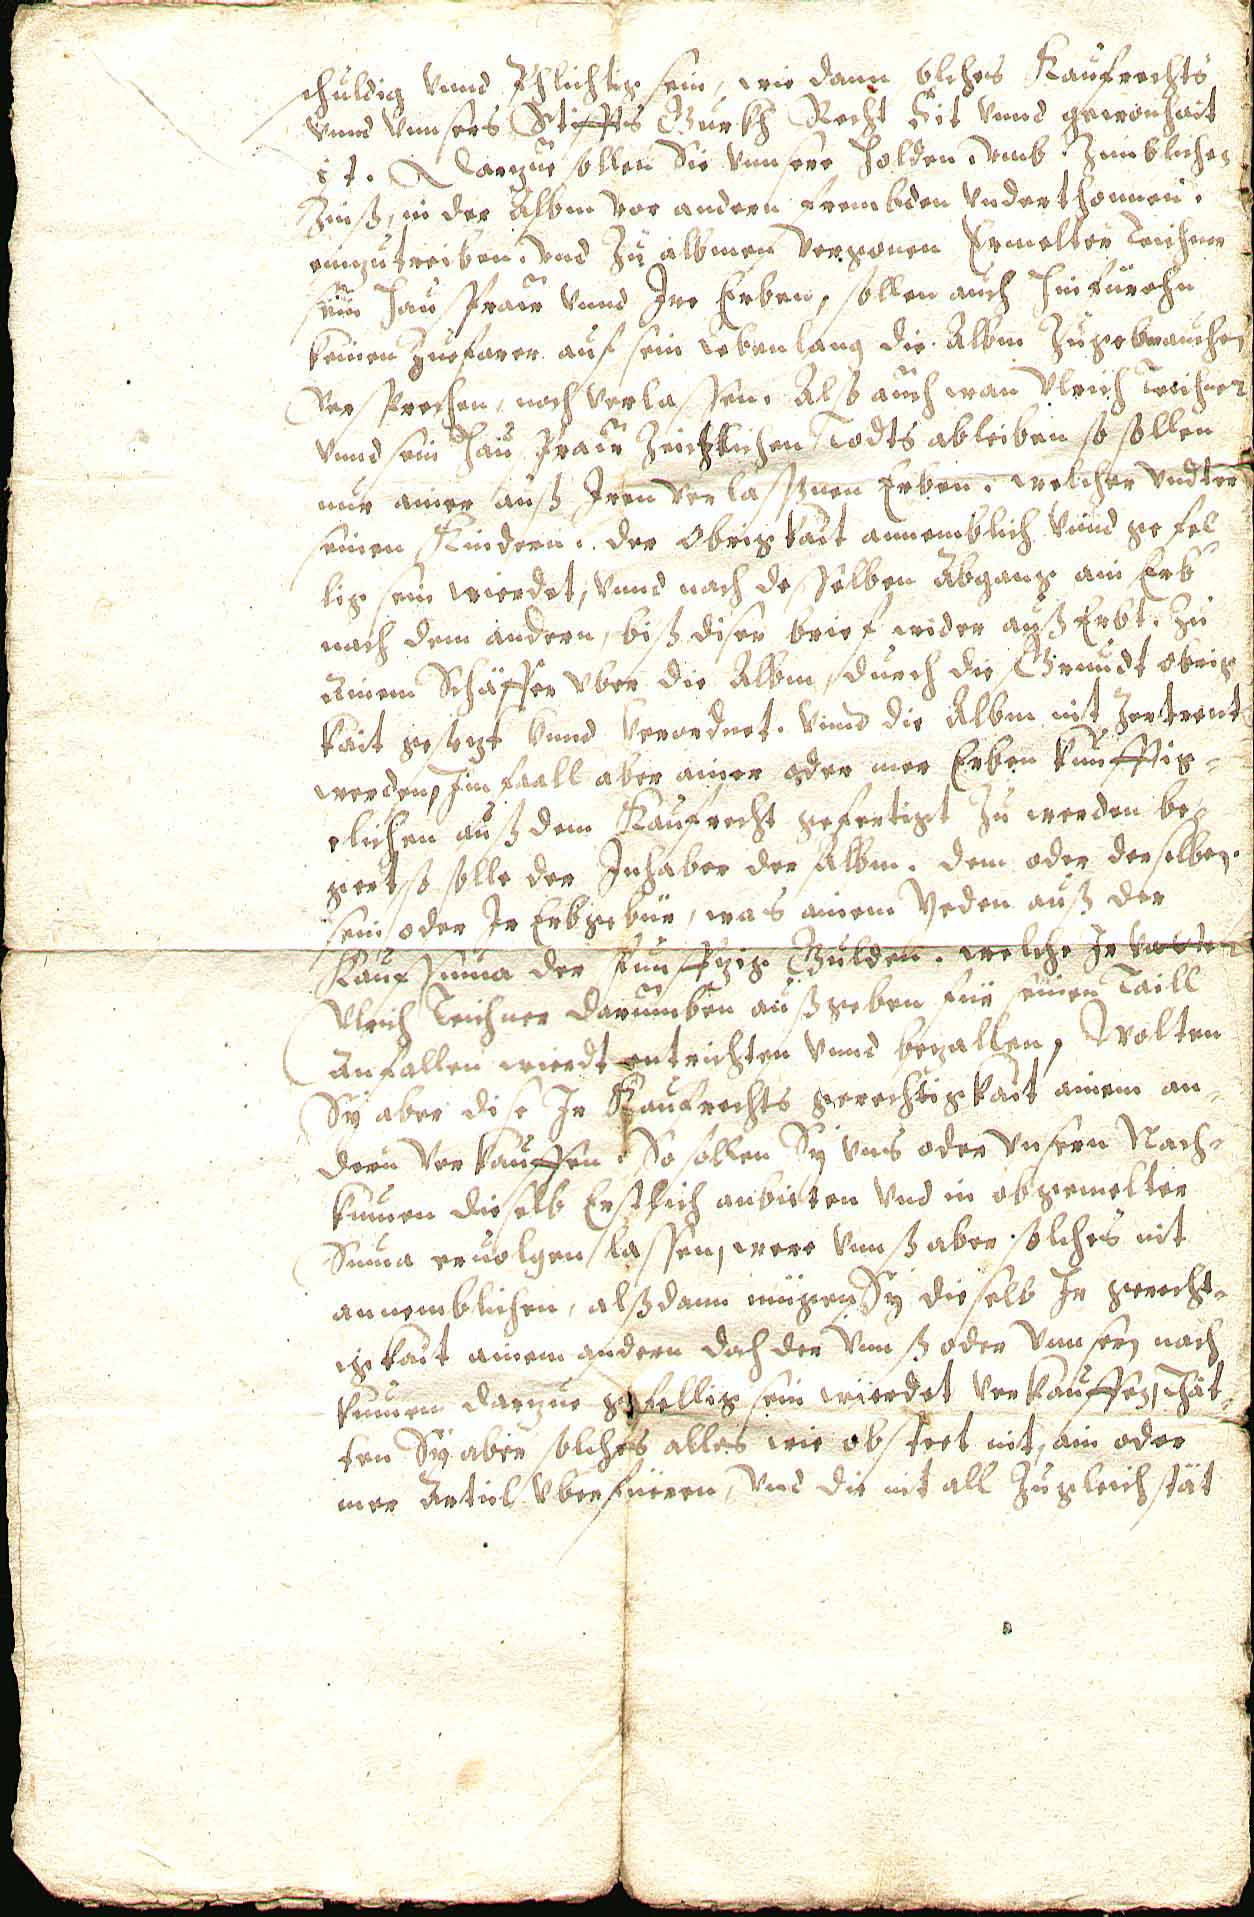 schuldig vnnd Phlichtig sein, wie dann solches Kaufrechts
vnnd vnnsers Stiffts Gurkh Recht Sit vnnd gewonhait
ist. Darzue sollen Sie vnnsere Holden vmb Zimblichen
Zinß, in der Albm vor andern frembden vnderthonnen
einzutreiben. vnd Zu albmen vergonen Ermelter Teichner
sein Hausfraw vnnd Ire Erben, sollen auch Hinfürohn
keinen Zuefarer auf sein lebenlang die Albm Zugebrauchen
Versprechen, noch verlassen. Alß auch wan Vlrich Teichner
vnnd sein Hausfraw Zeitlichen Todts ableiben so sollen
nur ainer auß Iren verlassnen Erben. welcher vndter
seinen Kindern. der Obrigkait annemblich vnnd gefel
lig sein wierdet, vnnd nach desselben Abgang ain Erb
nach dem andern, biß diser brief wider auß Erbt. Zu
ainem Schäffer vber die Albm, durch die Grundt obrig
kait gesezt vnnd verordnet. vnnd die Albm nit Zertrent
werden, Im faall aber ainer oder mer Erben künfftig-
elichen auß dem Kaufrecht gefertigt Zu werden be-
gert, so solle der Inhaber der Albm. dem oder derselben.
sein oder Ir Erbgebür, was ainem Yeden auß der
Kauf Suma der funfftzig Gulden. welche Ir vatter
Vlrich Teichner darumben außgeben für seinen Taill
Anfallen wierdt entrichten vnnd bezallen, Wolten
Sy aber dise Ir Kaufrechts gerechtigkait ainem an-
dern verkauffen. So sollen Sy vns oder vnsern Nach-
kumen dieselb Erstlich anbieten vnd in obgemelter
Suma eruolgen lassen, were vnnß aber solches nit
annemblichen, alßdann mügen Sy dieselb Ir gerecht-
igkait ainem andern doch der vnnß oder vnnsern nach
kumen darzue gefellig sein wierdet verkauffen, Thät-
ten Sy aber solches alles wie obsteet nit, ain oder
mer Articl vberfüeren, vnd die nit all Zugleich stät